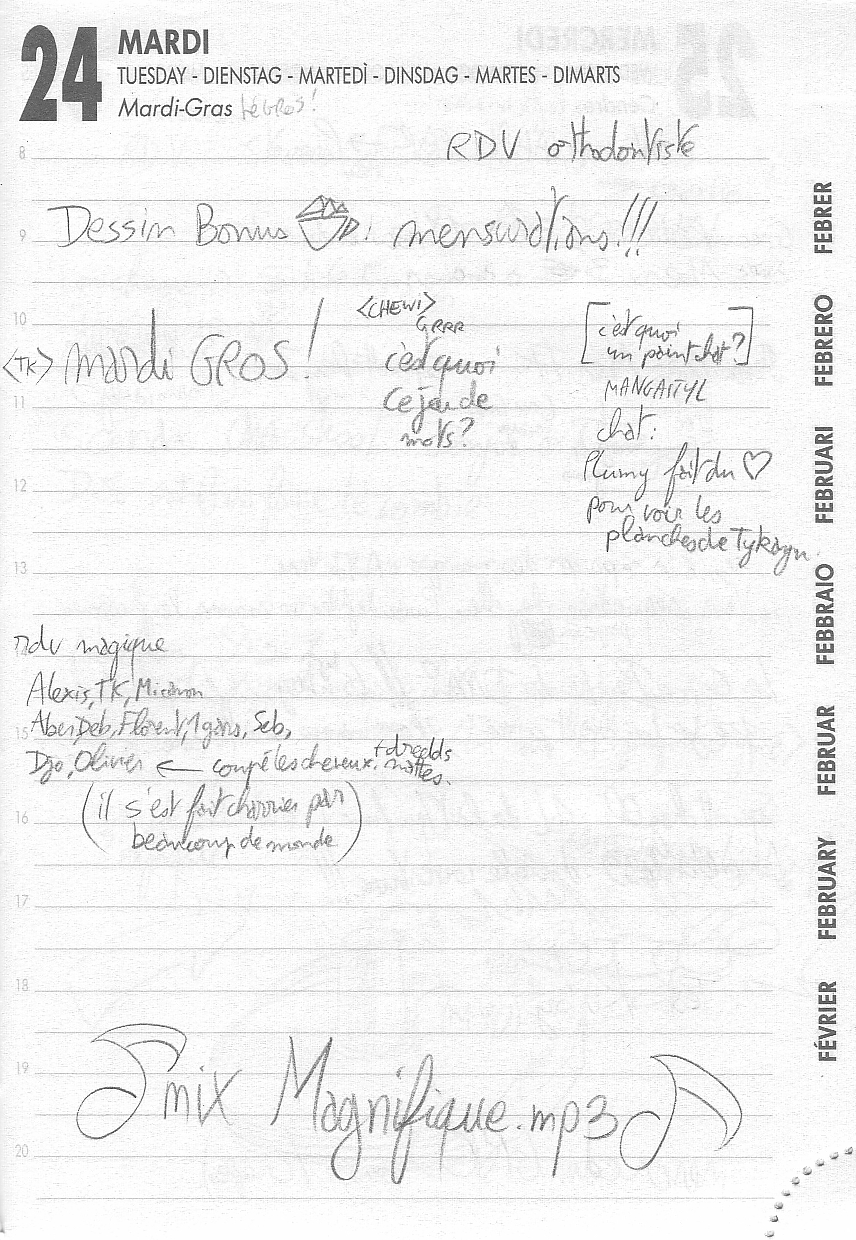 24 MARDI
TUESDAY - DIENSTAG - MARTEDÌ - DINSDAG - MARTES - DIMARTS
Mardi-Gras
8
RDV orthodontiste
9
Dessin Bonus : mensurations!!!
10
<TK> mardi GROS!
<CHEWI>
GRRR
c'est quoi
ce jeu de
mots?
[c'est quoi
un point chat?]
chat:
Plumy fait du ♡
pour voir les
planches de Tykayn.
11
12
13
14
rdv magique
Alexis, TK,
Florent, Seb,
15
Djo, Olivier ← coupé les cheveux.
+ dreadds
nattes.
(il s'est fait charrier par
beaucoup de monde)
16
17
18
19
♪ mix Magnifique.mp3 ♪
20
FÉVRIER FEBRUARY FEBRUAR FEBBRAIO FEBRUARI FEBRERO FEBRER